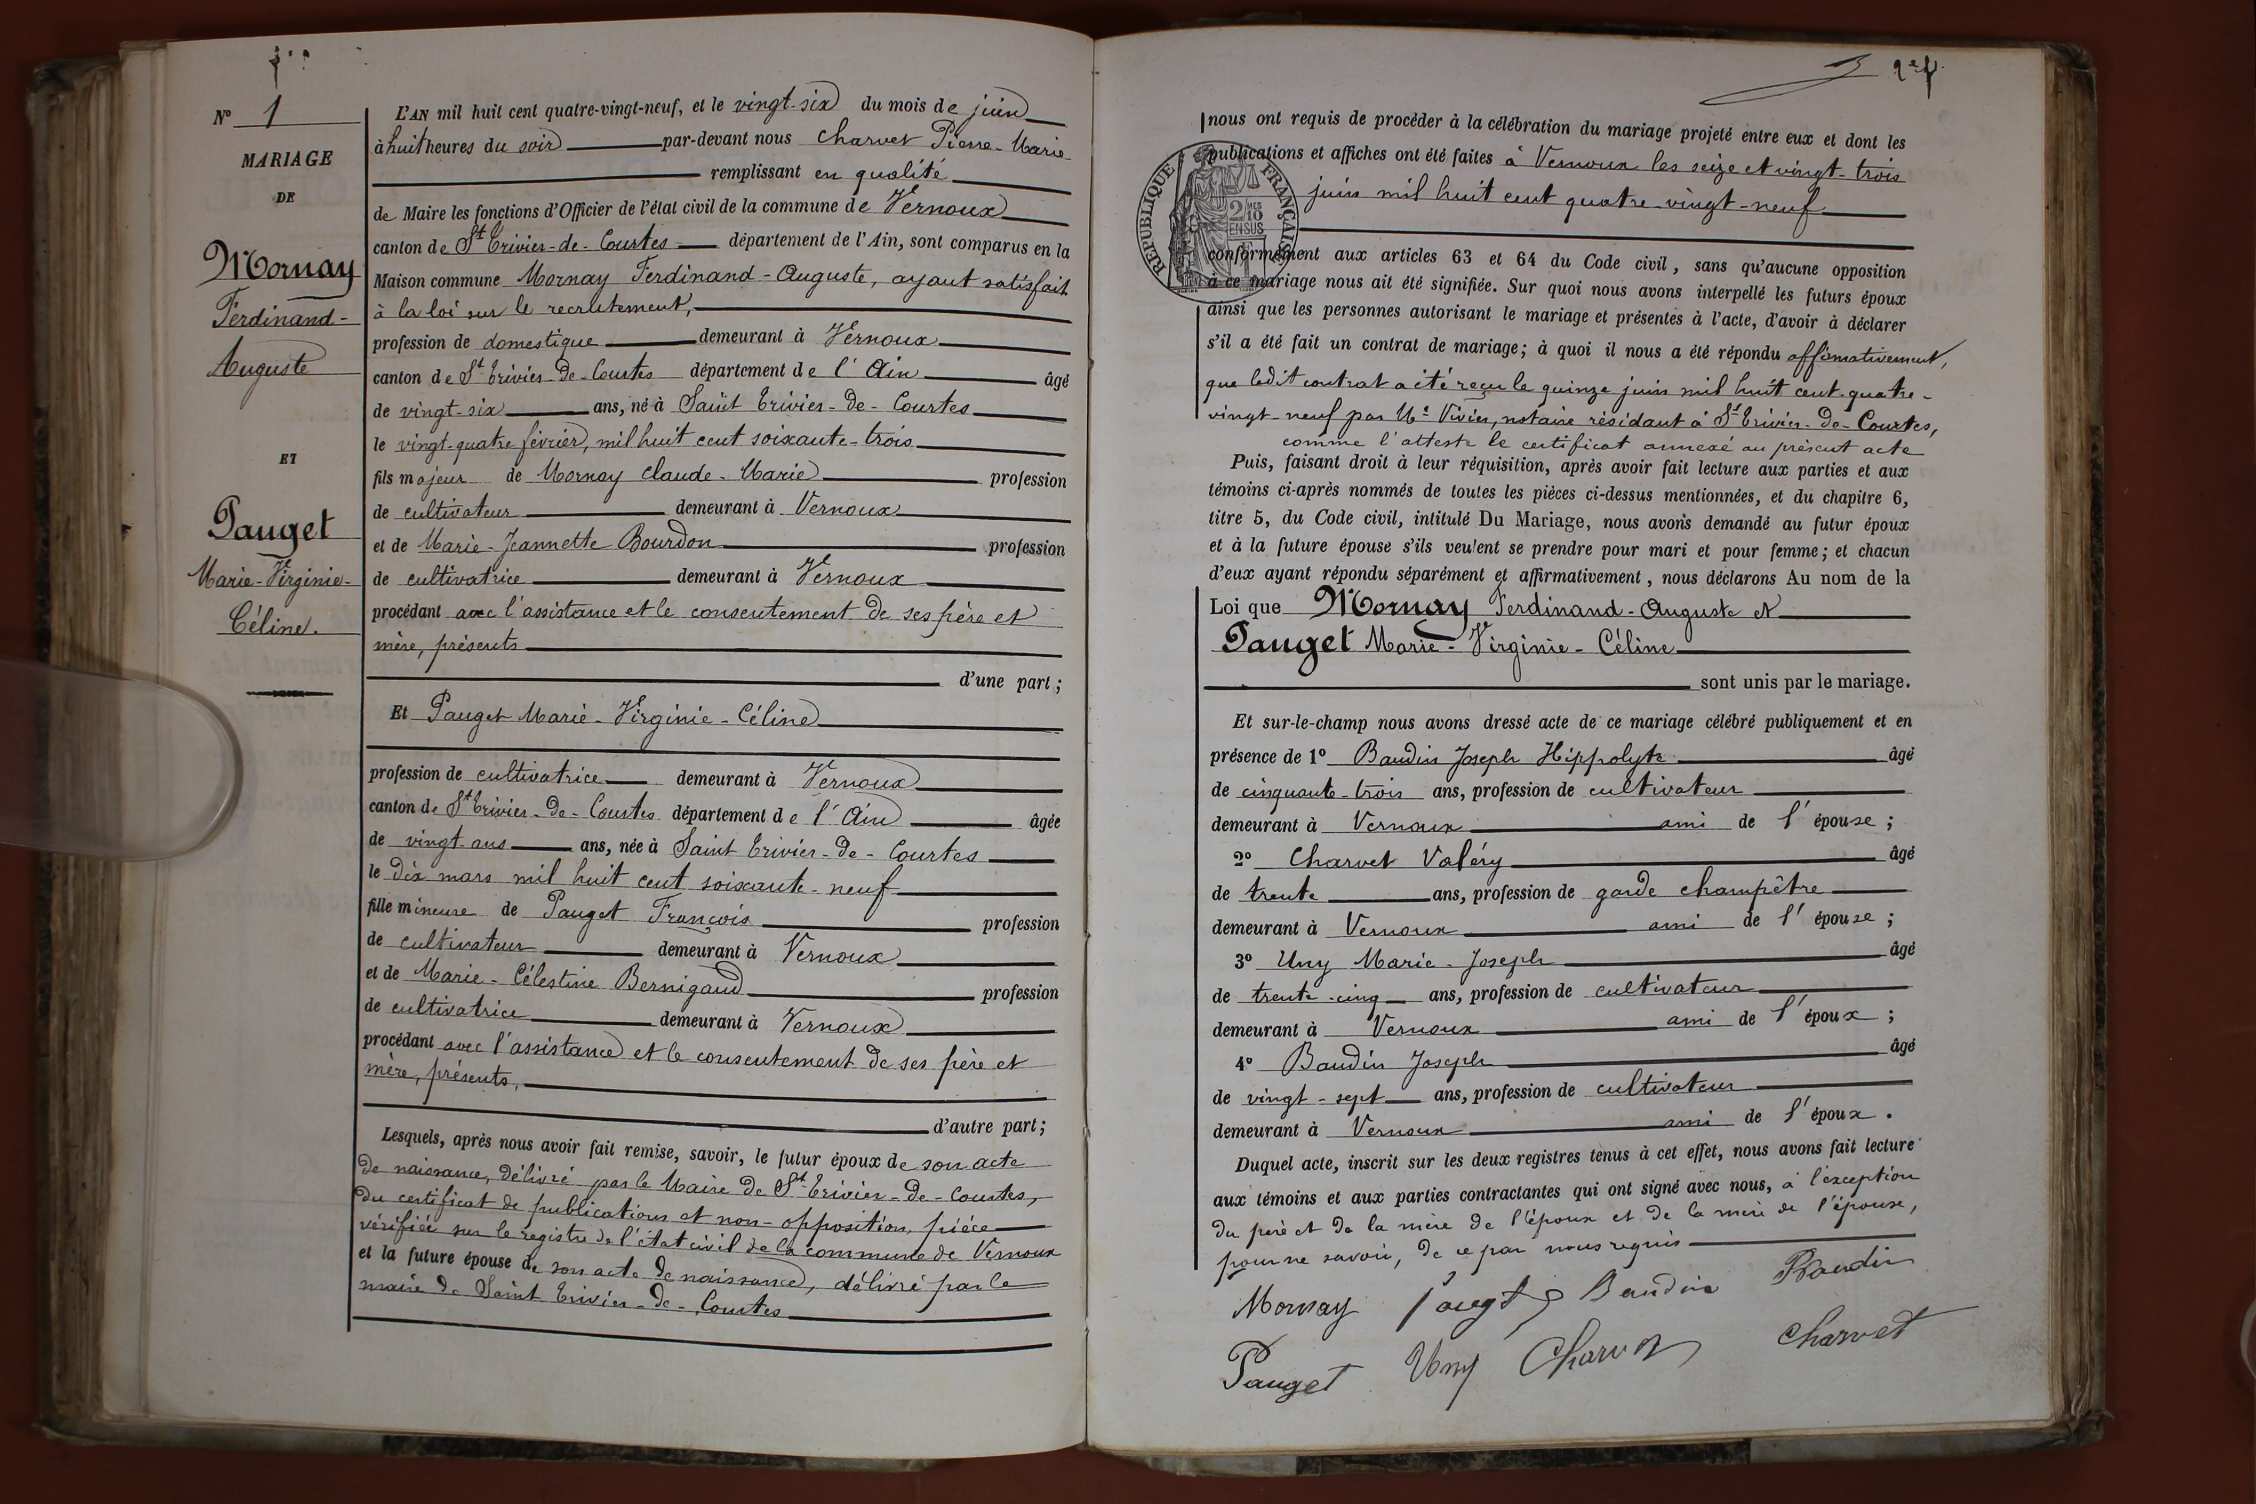 Nº 1
MARIAGE
DE
Mornay
Ferdinand-
Auguste
ET
Pauget
Marie-Virginie-
Céline.
L'AN mil huit cent quatre-vingt-neuf, et le vingt-six du mois de juin
à huit heures du soir par-devant nous Charvet Pierre-Marie
remplissant en qualité
de Maire les fonctions d'Officier de l'état civil de la commune de Vernoux
canton de St Trivier-de-Courtes département de l'Ain, sont comparus en la
Maison commune Mornay Ferdinand-Auguste, ayant satisfait
à la loi sur le recrutement,
profession de domestique demeurant à Vernoux
canton de St Trivier-de-Courtes département de l'Ain âgé
de vingt-six ans, né à Saint Trivier-de-Courtes
le vingt-quatre février, mil huit cent soixante-trois
fils majeur de Mornay Claude-Marie profession
de cultivateur demeurant à Vernoux
et de Marie-Jeannette Bourdon profession
de cultivatrice demeurant à Vernoux
procédant avec l'assistance et le consentement de ses père et
mère, présents
d'une part;
Et Pauget Marie-Virginie-Céline
profession de cultivatrice demeurant à Vernoux
canton de St Trivier-de-Courtes département de l'Ain âgée
de vingt ans ans, née à Saint Trivier-de-Courtes
le dix mars mil huit cent soixante-neuf
fille mineure de Pauget François profession
de cultivateur demeurant à Vernoux
et de Marie-Célestine Bernigaud profession
de cultivatrice demeurant à Vernoux
procédant avec l'assistance et le consentement de ses père et
mère, présents,
d'autre part;
Lesquels, après nous avoir fait remise, savoir, le futur époux de son acte
de naissance, délivré par le Maire de St Trivier-de-Courtes,
du certificat de publications et non-opposition, pièce
vérifiée sur le registre de l'état civil de la commune de Vernoux
et la future épouse de son acte de naissance, délivré par le
maire de Saint Trivier-de-Courtes
2e f.
nous ont requis de procéder à la célébration du mariage projeté entre eux et dont les
publications et affiches ont été faites à Vernoux les seize et vingt-trois
juin mil huit cent quatre-vingt-neuf
RÉPUBLIQUE FRANÇAISE
2 MES
10
EN SUS
conformément aux articles 63 et 64 du Code civil, sans qu'aucune opposition
à ce mariage nous ait été signifiée. Sur quoi nous avons interpellé les futurs époux
ainsi que les personnes autorisant le mariage et présentes à l'acte, d'avoir à déclarer
s'il a été fait un contrat de mariage; à quoi il nous a été répondu affirmativement,
que ledit contrat a été reçu le quinze juin mil huit cent quatre-
vingt-neuf par Me Vivier, notaire résidant à St Trivier-de-Courtes,
comme l'atteste le certificat annexé au présent acte
Puis, faisant droit à leur réquisition, après avoir fait lecture aux parties et aux
témoins ci-après nommés de toutes les pièces ci-dessus mentionnées, et du chapitre 6,
titre 5, du Code civil, intitulé Du Mariage, nous avons demandé au futur époux
et à la future épouse s'ils veulent se prendre pour mari et pour femme; et chacun
d'eux ayant répondu séparément et affirmativement, nous déclarons Au nom de la
Loi que Mornay Ferdinand-Auguste et
Pauget Marie-Virginie-Céline
sont unis par le mariage.
Et sur-le-champ nous avons dressé acte de ce mariage célébré publiquement et en
présence de 1º Baudin Joseph Hippolyte âgé
de cinquante-trois ans, profession de cultivateur
demeurant à Vernoux ami de l'épouse;
2º Charvet Valéry âgé
de trente ans, profession de garde champêtre
demeurant à Vernoux ami de l'épouse;
3º Uny Marie-Joseph âgé
de trente-cinq ans, profession de cultivateur
demeurant à Vernoux ami de l'époux;
4º Baudin Joseph âgé
de vingt-sept ans, profession de cultivateur
demeurant à Vernoux ami de l'époux.
Duquel acte, inscrit sur les deux registres tenus à cet effet, nous avons fait lecture
aux témoins et aux parties contractantes qui ont signé avec nous, à l'exception
du père et de la mère de l'époux et de la mère de l'épouse,
pour ne savoir, de ce par nous requis
Mornay Baudin Baudin
Pauget Uny Charvet Charvet